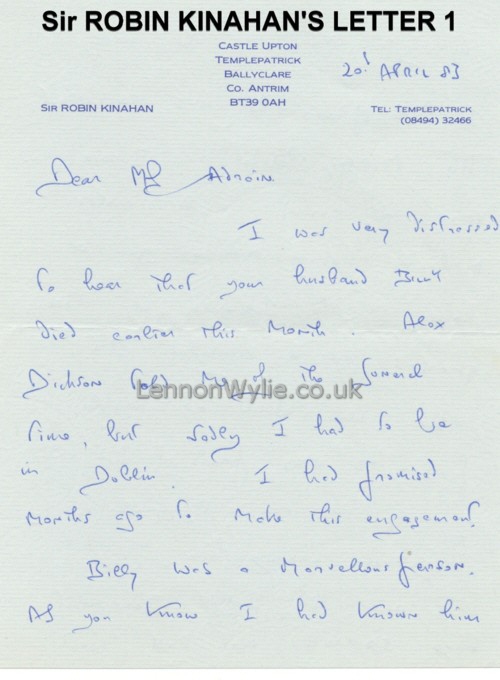 Sir ROBIN KINAHAN'S LETTER 1
CASTLE UPTON
TEMPLEPATRICK
BALLYCLARE
CO. ANTRIM
BT39 0AH
20! APRIL 83
SIR ROBIN KINAHAN
TEL: TEMPLEPATRICK
(08494) 32466
Dear Adraine
I was very distressed
to hear that your husband Billy
died earlier this month. Alex
Dickson told me of the funeral
time, but sadly I had to be
in Dublin. I had promised
months ago to make this engagement.
Billy was a marvellous person.
As you know I had known him
LennonWylie.co.uk